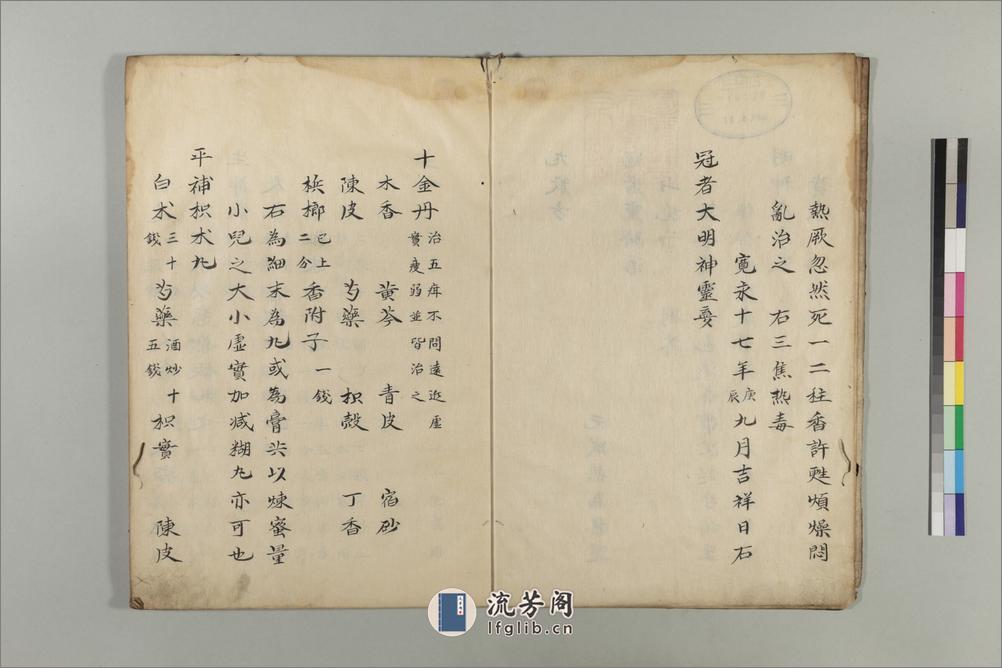 熱厥忽然死一二柱香許甦煩燥悶
亂治之 右三焦热毒
寛永十七年庚辰九月吉祥日石
冠者大明神靈夢
十金丹治五疳不問遠近虛實瘦弱並皆治之
木香 黄芩 青皮 宿砂
陳皮 芍藥 枳殼 丁香
梹榔已上二分 香附子一錢
右為細末為丸或為膏共以煉蜜量
小兒之大小虛實加减糊丸亦可也
平補枳术丸
白术三十錢 芍藥酒炒十五錢 枳實 陳皮
流芳阁
lfglib.cn